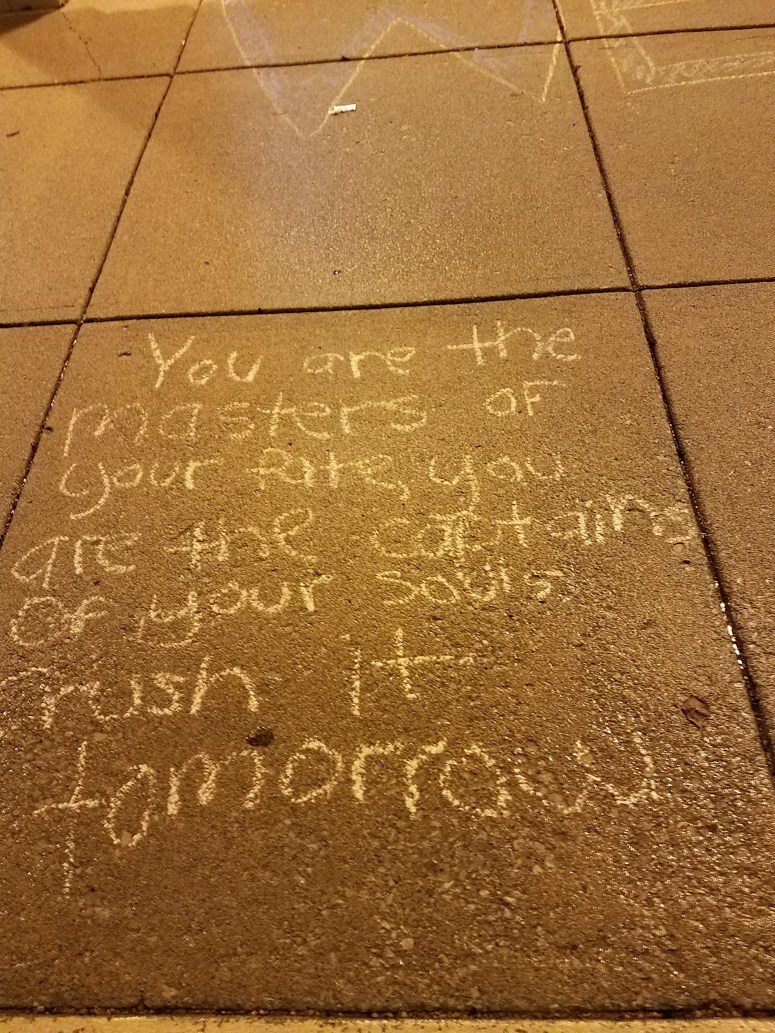 WE
You are the
masters of
your fate, you
are the captains
of your souls
rush it
tomorrow